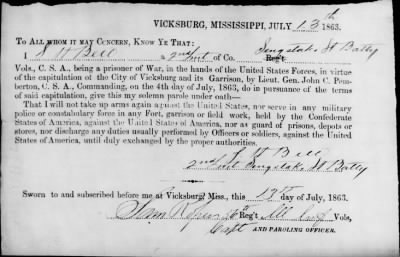 VICKSBURG, MISSISSIPPI, JULY 13th 1863.
To All whom it may Concern, Know Ye That:
I S H Bell a 2nd Lieut of Co. Reg't
Vols., C. S. A., being a prisoner of War, in the hands of the United States Forces, in virtue
of the capitulation of the City of Vicksburg and its Garrison, by Lieut. Gen. John C. Pem-
berton, C. S. A., Commanding, on the 4th day of July, 1863, do in pursuance of the terms
of said capitulation, give this my solemn parole under oath—
That I will not take up arms again against the United States, nor serve in any military
police or constabulary force in any Fort, garrison or field work, held by the Confederate
States of America, against the United States of America, nor as guard of prisons, depots or
stores, nor discharge any duties usually performed by Officers or soldiers, against the United
States of America, until duly exchanged by the proper authorities.
S H Bell
2nd Lieut
Sworn to and subscribed before me at Vicksburg, Miss., this 13th day of July, 1863.
Reg't Ill Vols,
Capt AND PAROLING OFFICER.